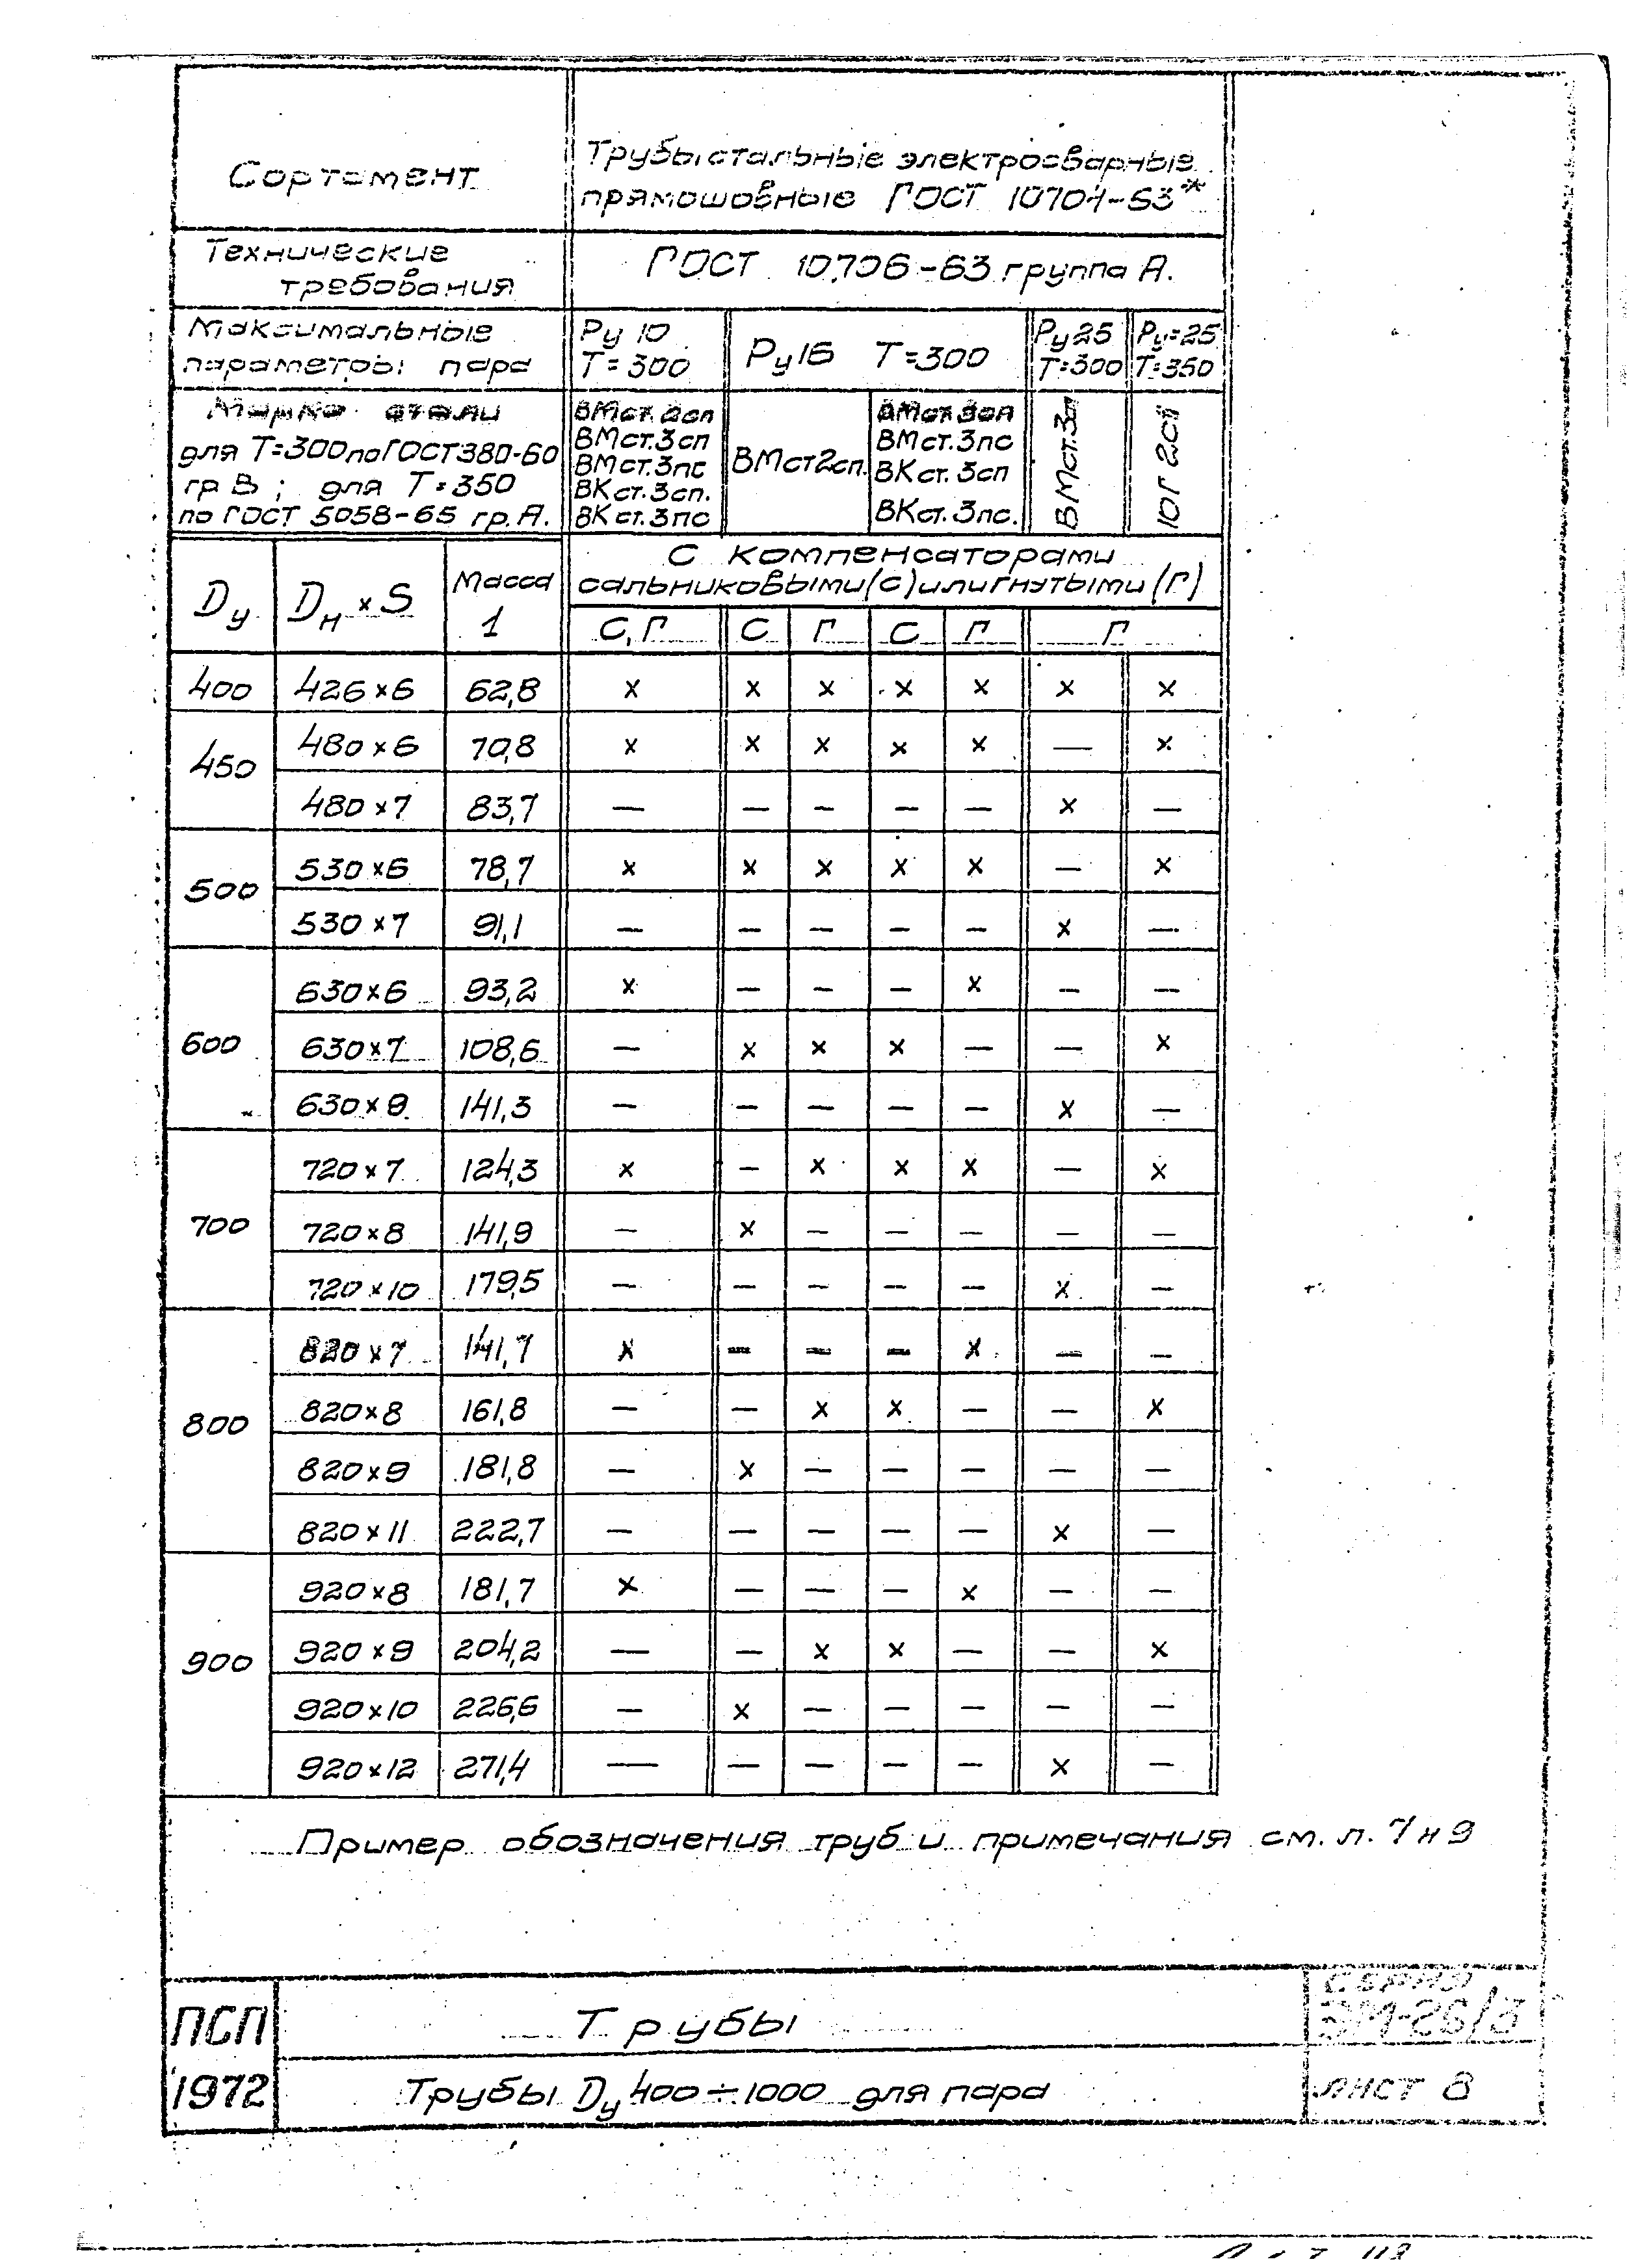 Сортамент
Трубы стальные электросварные
прямошовные ГОСТ 10704-63*
Технические
требования
ГОСТ 10706-63 группа А.
Максимальные
параметры пара
Ру 10
Т=300
Ру16 Т=300
Ру25
Т=300
Ру=25
Т=350
Марка стали
для Т=300 по ГОСТ 380-60
гр В; для Т=350
по ГОСТ 5058-65 гр. А.
ВМст.2сп
ВМст.3сп
ВМст.3пс
ВКст.3сп.
ВКст.3пс
ВМст2сп.
ВМст.3сп
ВМст.3пс
ВКст.3сп
ВКст.3пс.
ВМст.3сп
10Г2с1
Dу Dн×S Масса 1
С компенсаторами
сальниковыми (с) или гнутыми (Г)
С,Г С Г С Г Г
400 426×6 62,8 × × × × × × ×
450 480×6 70,8 × × × × × — ×
480×7 83,7 — — — — — × —
500 530×6 78,7 × × × × × — ×
530×7 91,1 — — — — — × —
630×6 93,2 × — — — × — —
600 630×7 108,6 — × × × — — ×
630×9 141,3 — — — — — × —
720×7 124,3 × — × × × — ×
700 720×8 141,9 — × — — — — —
720×10 179,5 — — — — — × —
820×7 141,7 × — — — × — —
800 820×8 161,8 — — × × — — ×
820×9 181,8 — × — — — — —
820×11 222,7 — — — — — × —
920×8 181,7 × — — — × — —
900 920×9 204,2 — — × × — — ×
920×10 226,6 — × — — — — —
920×12 271,4 — — — — — × —
Пример обозначения труб и примечания см. л. 7 и 9
ПСП
1972
Трубы
Трубы Dу 400÷1000 для пара
Серия
ЭМ-26/3
Лист 8